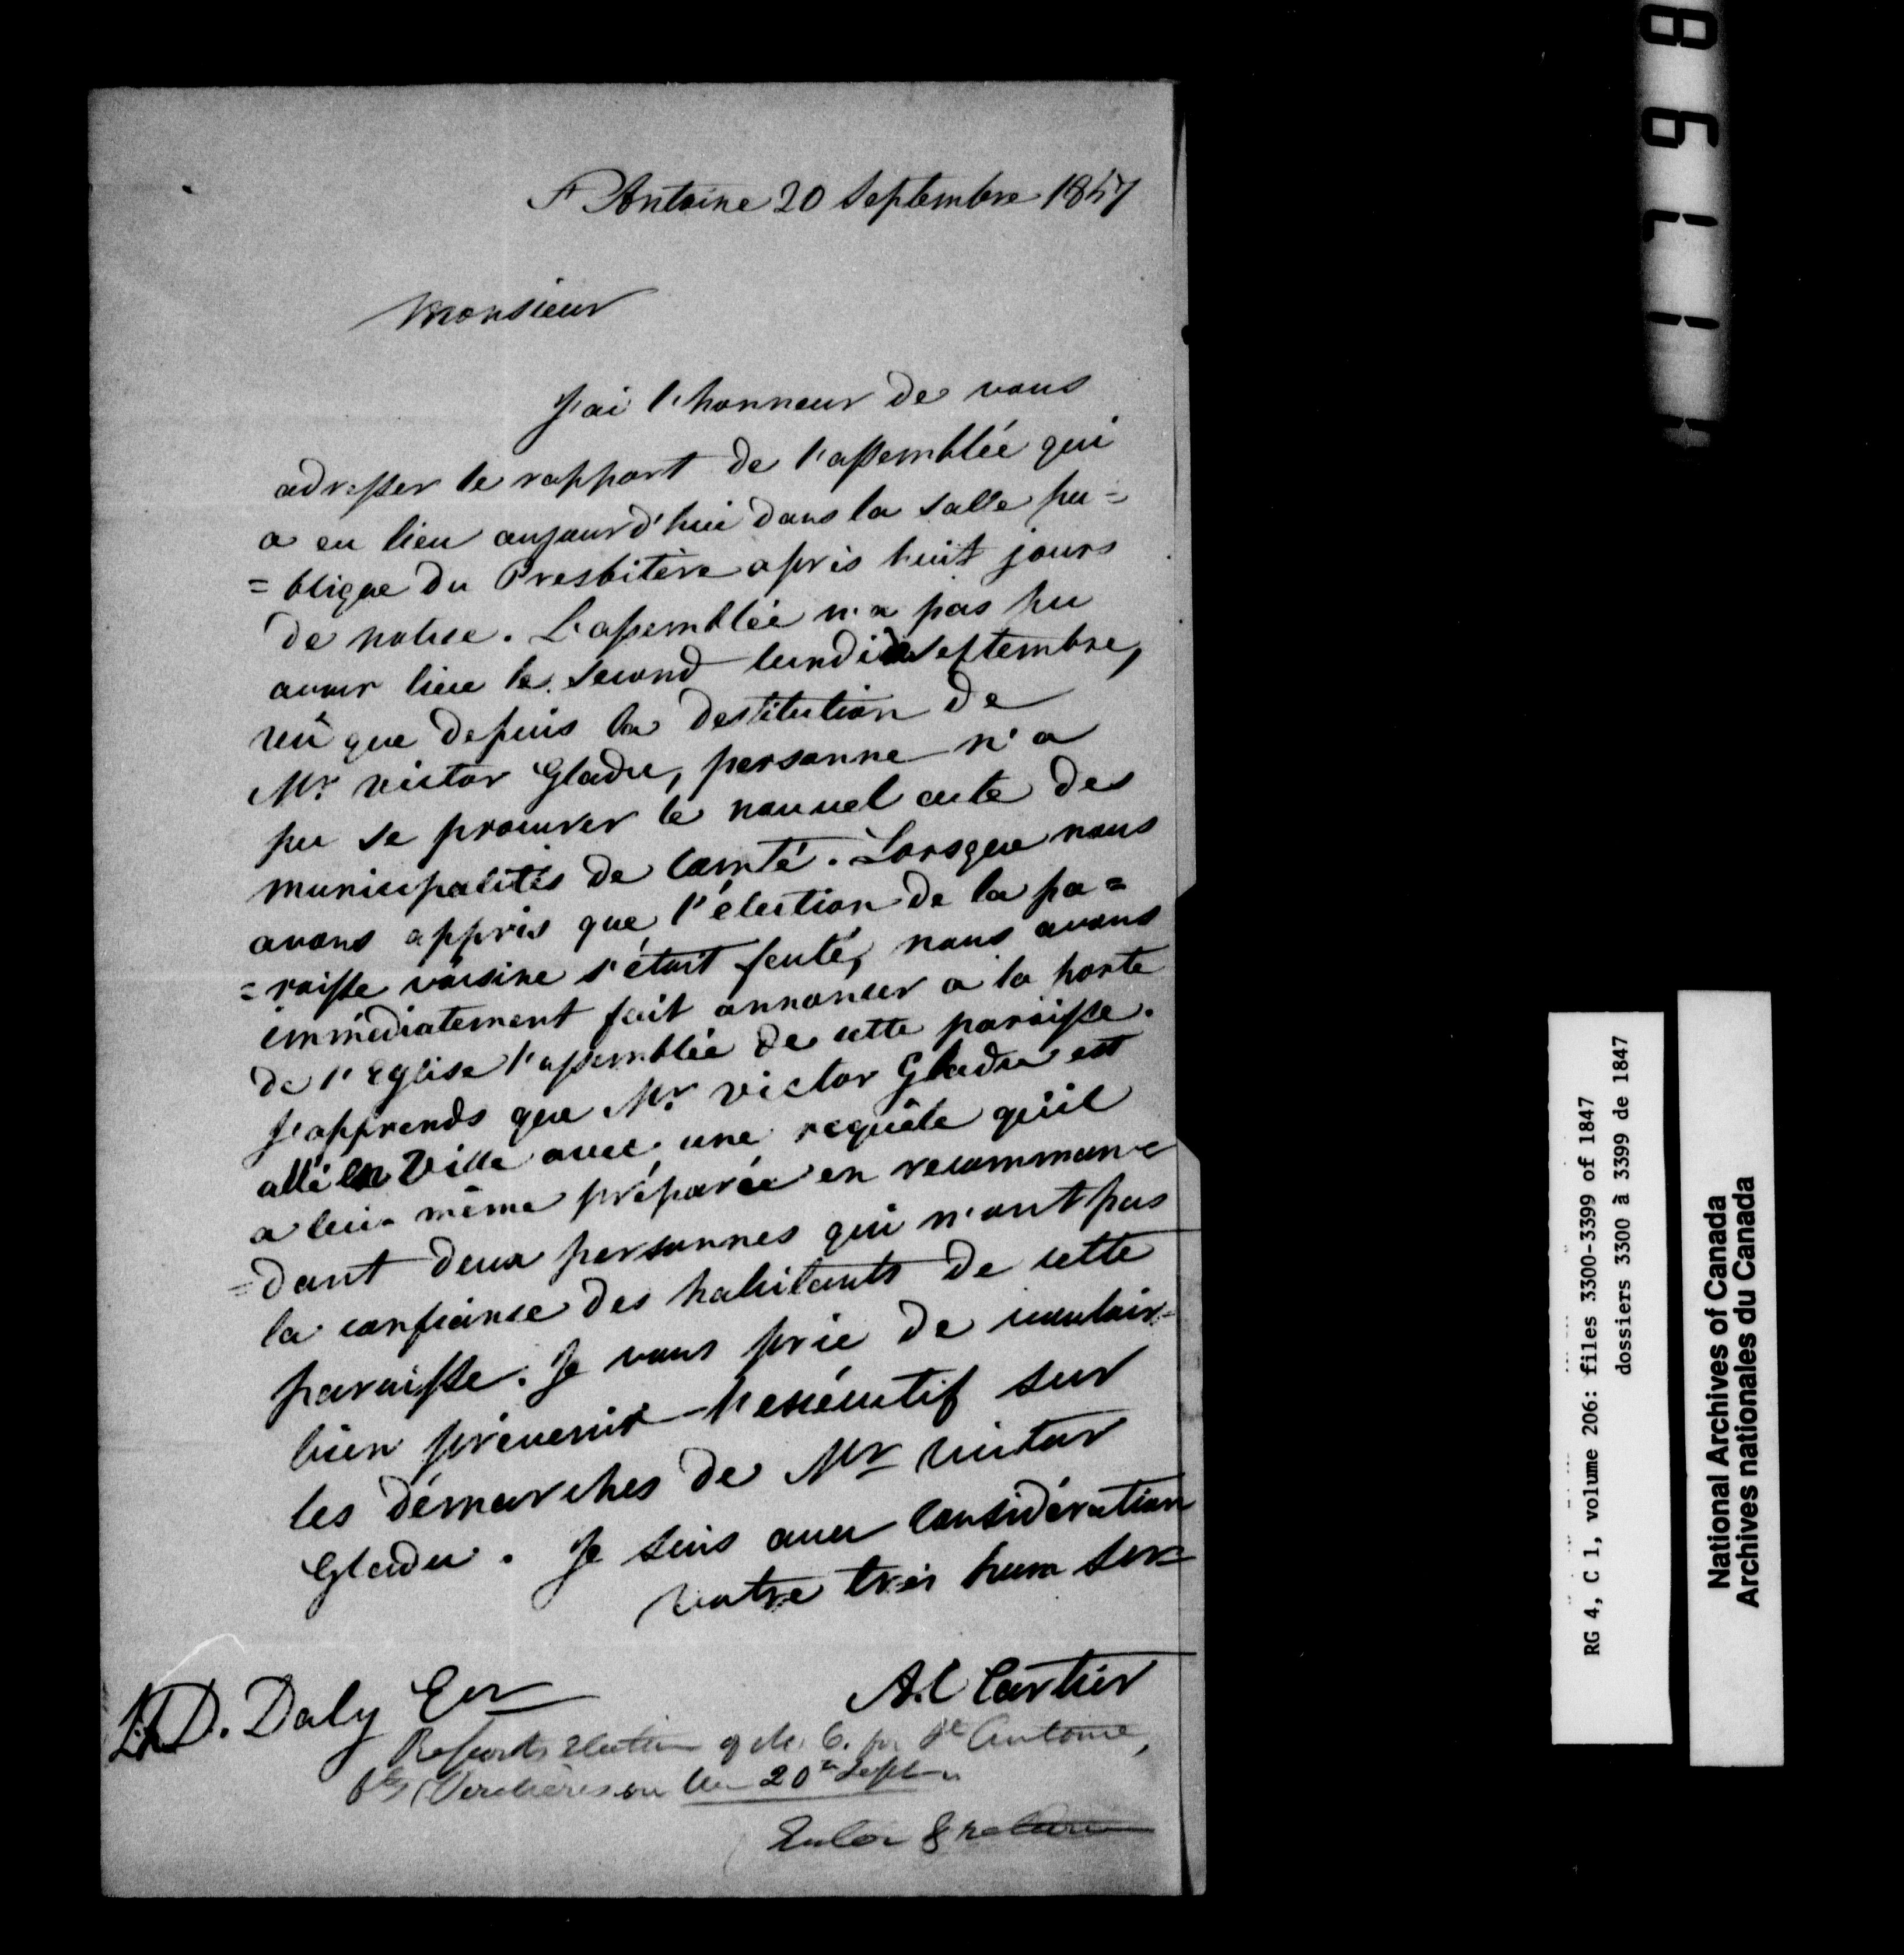 St Antoine 20 Septembre 1847
Monsieur
J'ai l'honneur de vous
adresser le rapport de l'assemblée qui
a eu lieu aujourd'hui dans la salle pu=
=blique du Presbitère après huit jours
de notice. L'assemblée n'a pas pu
avoir lieu le second lundi de Septembre,
vû que depuis la destitution de
Mr. Victor Gladu, personne n'a
pu se procurer le nouvel acte des
municipalités de Comté. Lorsque nous
avons appris que l'élection de la pa=
=roisse voisine s'était faite, nous avons
immédiatement fait annoncer a la porte
de l'Eglise l'assemblée de cette paroisse.
J'apprends que Mr. Victor Gladu est
allé en Ville avec une requête qu'il
a lui-même préparée en recomman=
=dant deux personnes qui n'ont pas
la confiance des habitants de cette
paroisse. Je vous prie de vouloir
bien prévenir l'exécutif sur
les démarches de Mr Victor
Gladu. Je suis avec Considération
Votre très hum ser
A. C Cartier
D. Daly Ecr
Reports Election of M. C. for St Antoine,
Verchères on the 20th Sept
RG 4, C 1, volume 206: files 3300-3399 of 1847
dossiers 3300 à 3399 de 1847
National Archives of Canada
Archives nationales du Canada